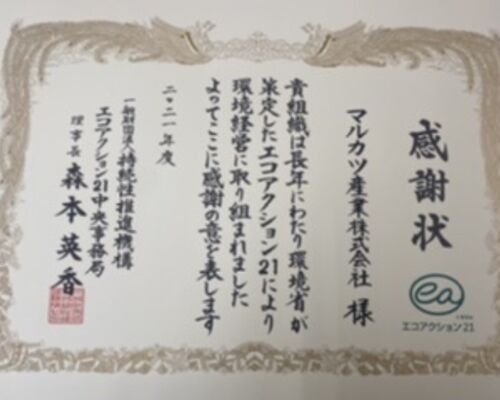 感謝状
ea
エコアクション21
マルカツ産業株式会社 様
貴組織は長年にわたり環境省が
策定したエコアクション21により
環境経営に取り組まれました
よってここに感謝の意を表します
二〇二一年度
一般財団法人持続性推進機構
エコアクション21中央事務局
理事長 森本英香